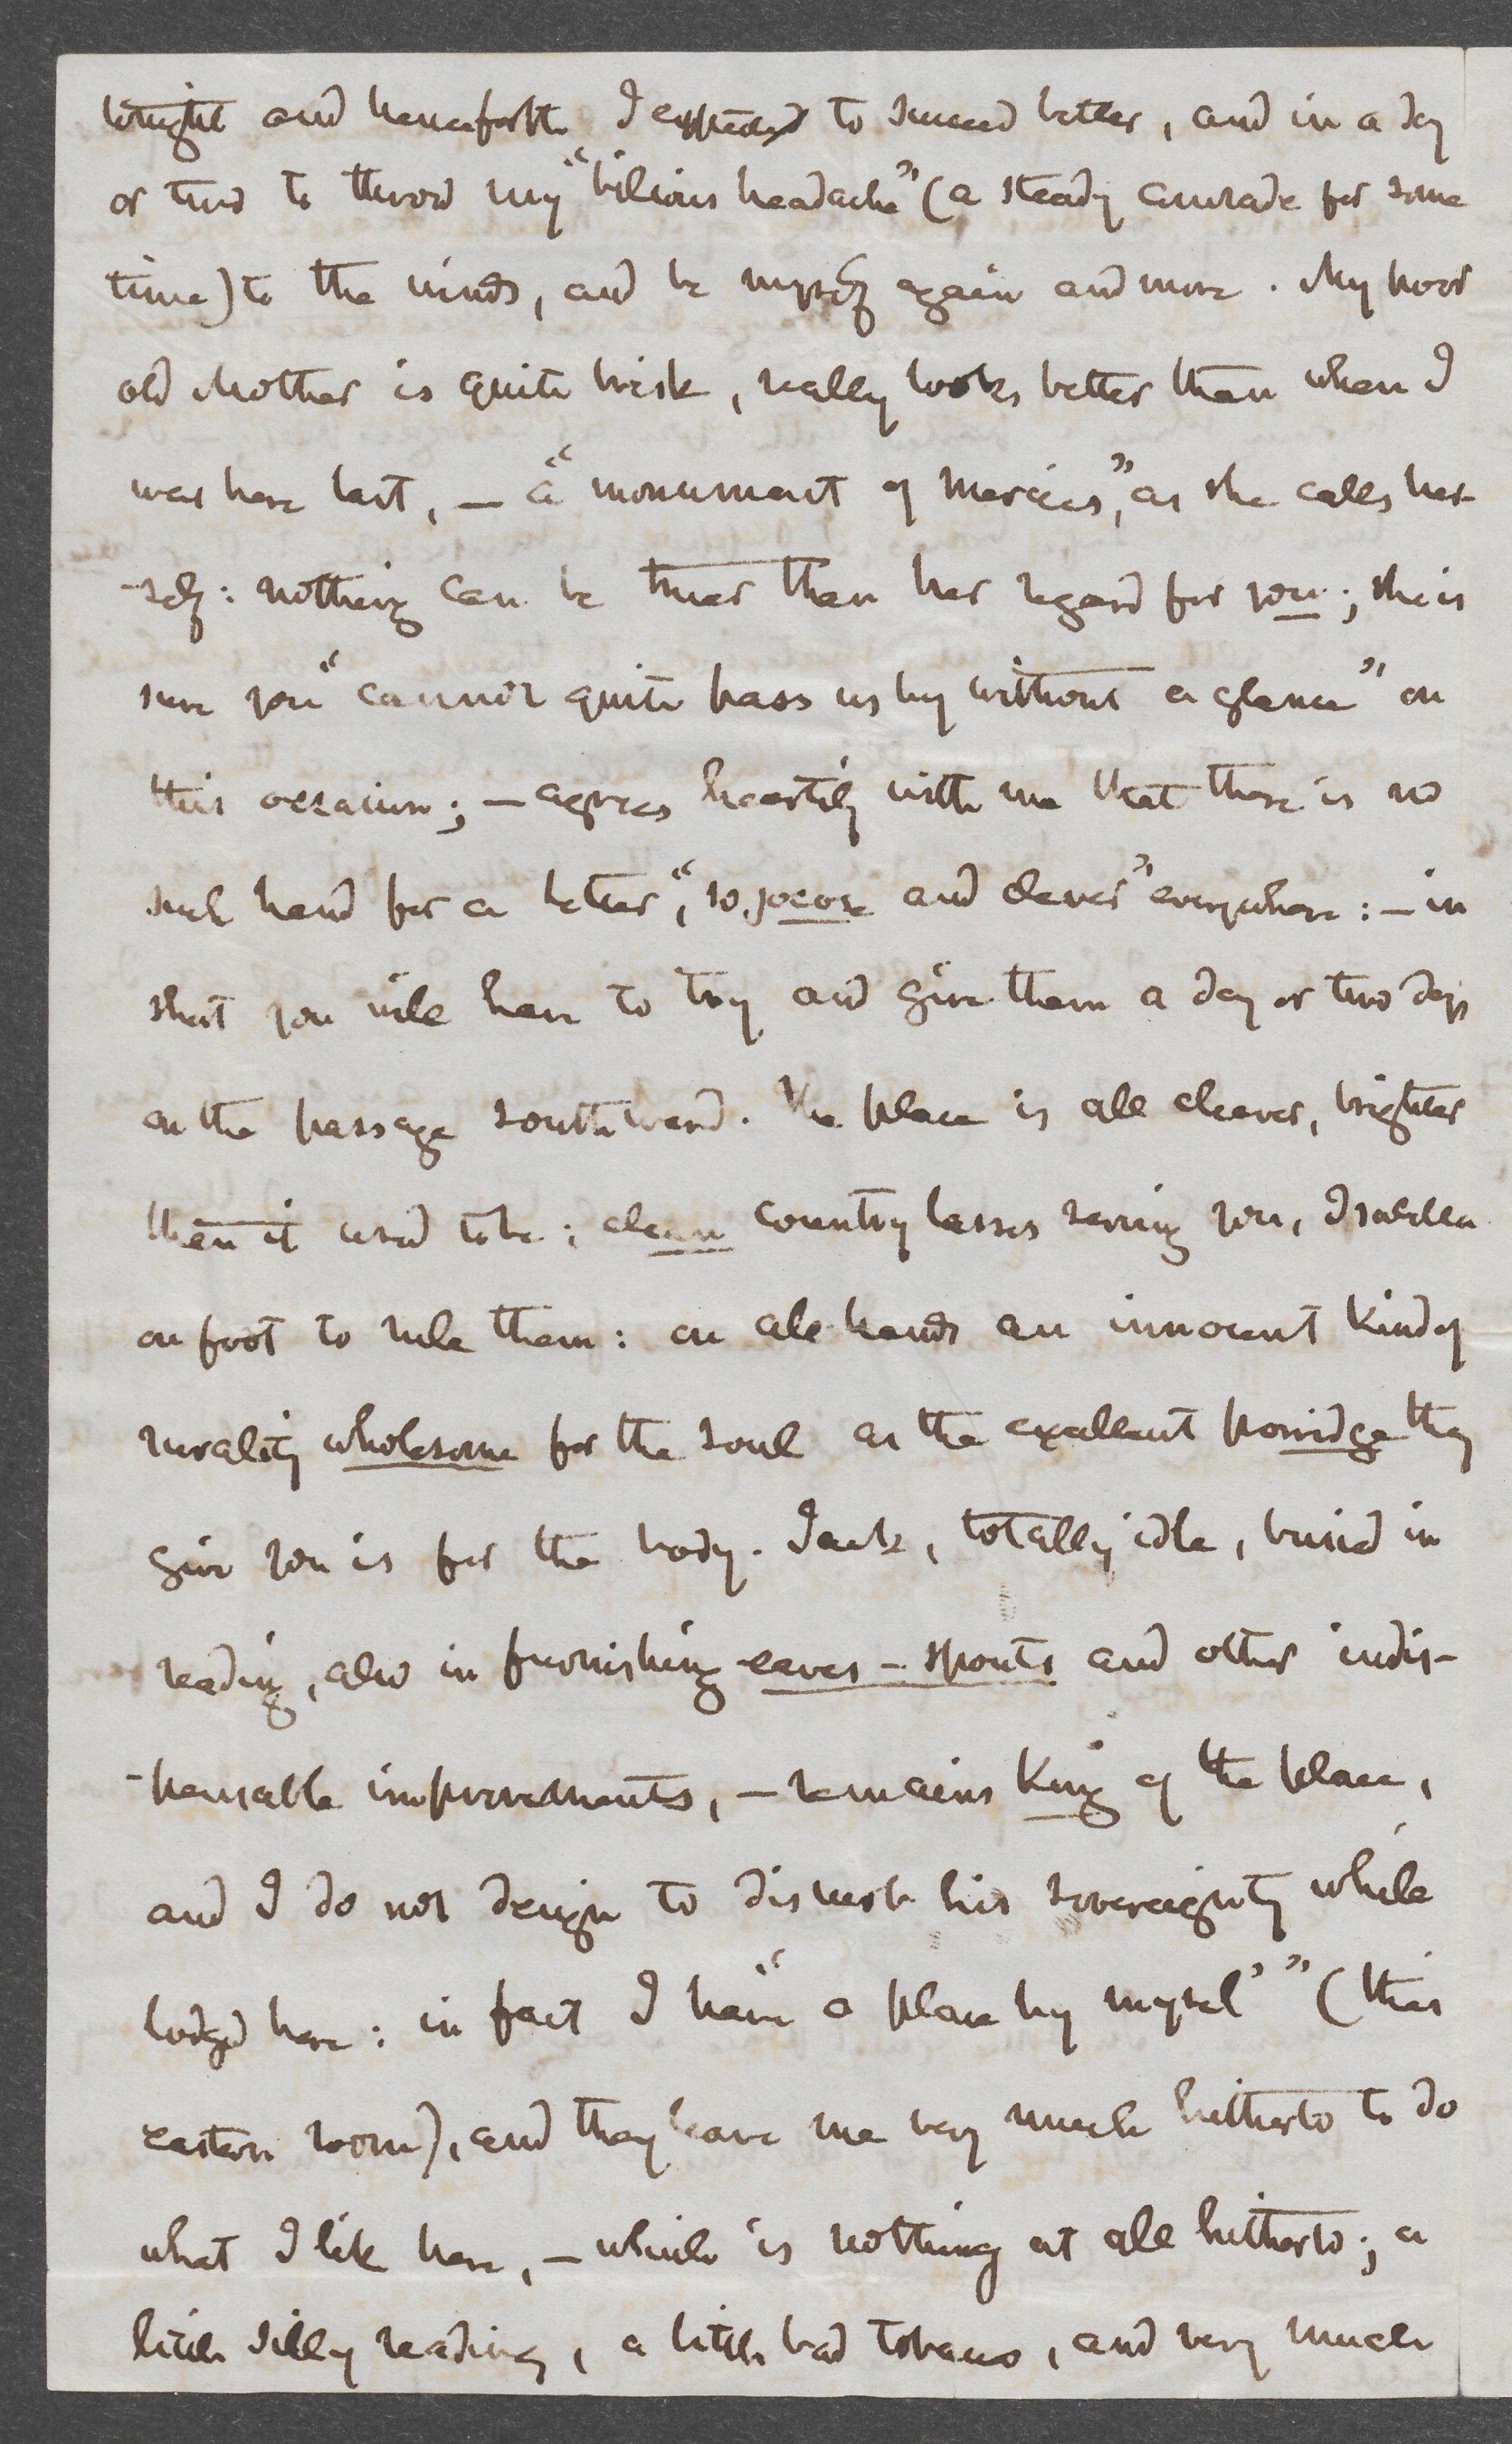 tonight and henceforth I expected to succeed better, and in a day
or two to throw my "bilious headache" (a steady comrade for some
time) to the winds, and be myself again and more. My poor
old Mother is quite brisk, really looks better than when I
was here last, — a "monument of mercies," as she calls her-
-self: nothing can be truer than her regard for you; she is
sure you "cannot quite pass us by without a glance" on
this occasion; — agrees heartily with me that there is no
such hand for a letter, "so jocose and clever" everywhere: — in
short you will have to try and give them a day or two days
on the passage southward. The place is all cleaner, brighter
than it used to be; clean country lasses serving you, Isabella
on foot to rule them: on all hands an innocent kind of
rurality wholesome for the soul as the excellent porridge they
give you is for the body. Jack, totally idle, buried in
reading, also in furnishing eaves-spouts and other indis-
-pensable improvements, — remains King of the place,
and I do not design to disturb his sovereignty while
lodged here: in fact I have "a place by mysel'" (this
eastern room), and they leave me very much hitherto to do
what I like here, — which is nothing at all hitherto; a
little silly reading, a little bad tobacco, and very much